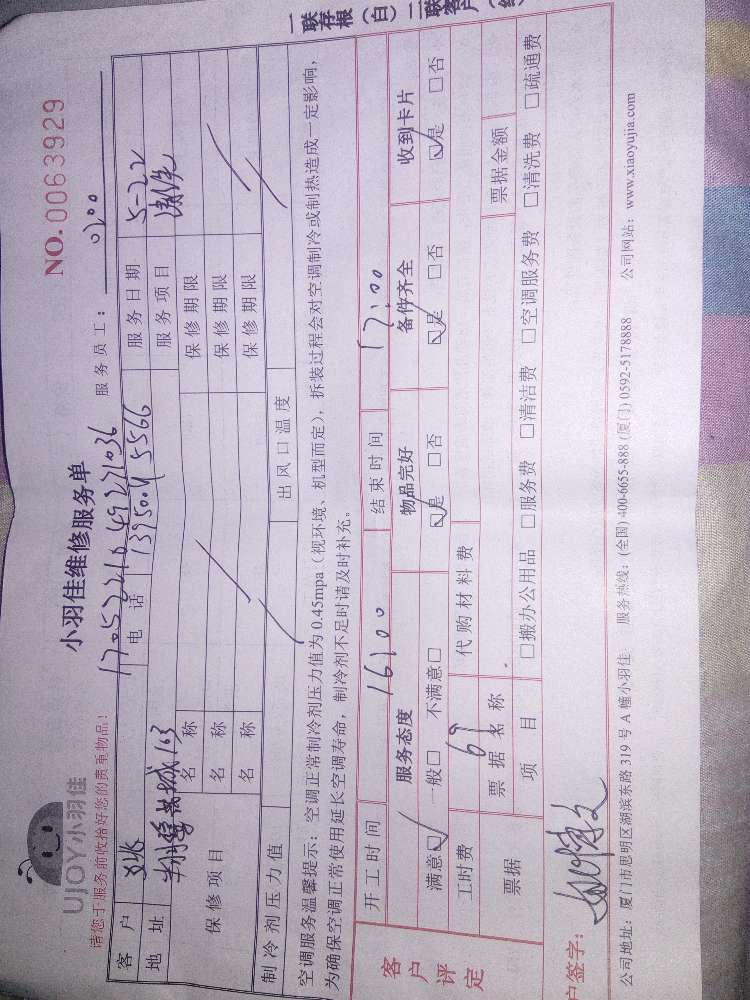 UJOY小羽佳
小羽佳维修服务单
NO. 0063929
请您于服务前收拾好您的贵重物品!
1705221049271036
服务员工: 0200
客户 姚 电话 13950045566 服务日期 5-22
地址 163 服务项目 清洗
保修项目 名称 保修期限
名称 保修期限
名称 保修期限
制冷剂压力值 出风口温度
空调服务温馨提示:空调正常制冷剂压力值为 0.45mpa(视环境、机型而定),拆装过程会对空调制冷或制热造成一定影响,
为确保空调正常使用延长空调寿命,制冷剂不足时请及时补充。
客户评定 开工时间 16:00 结束时间 17:00
服务态度 物品完好 备件齐全 收到卡片
满意☑ 一般□ 不满意□ ☑是 □否 ☑是 □否 ☑是 □否
工时费 69 代购材料费
票据 票据名称 票据金额
项目 □搬办公用品 □服务费 □清洁费 □空调服务费 □清洗费 □疏通费
户签字:
公司地址:厦门市思明区湖滨东路 319 号 A 幢小羽佳 服务热线:(全国) 400-6655-888 (厦门) 0592-5178888 公司网站:www.xiaoyujia.com
一联存根(白)二联客户(